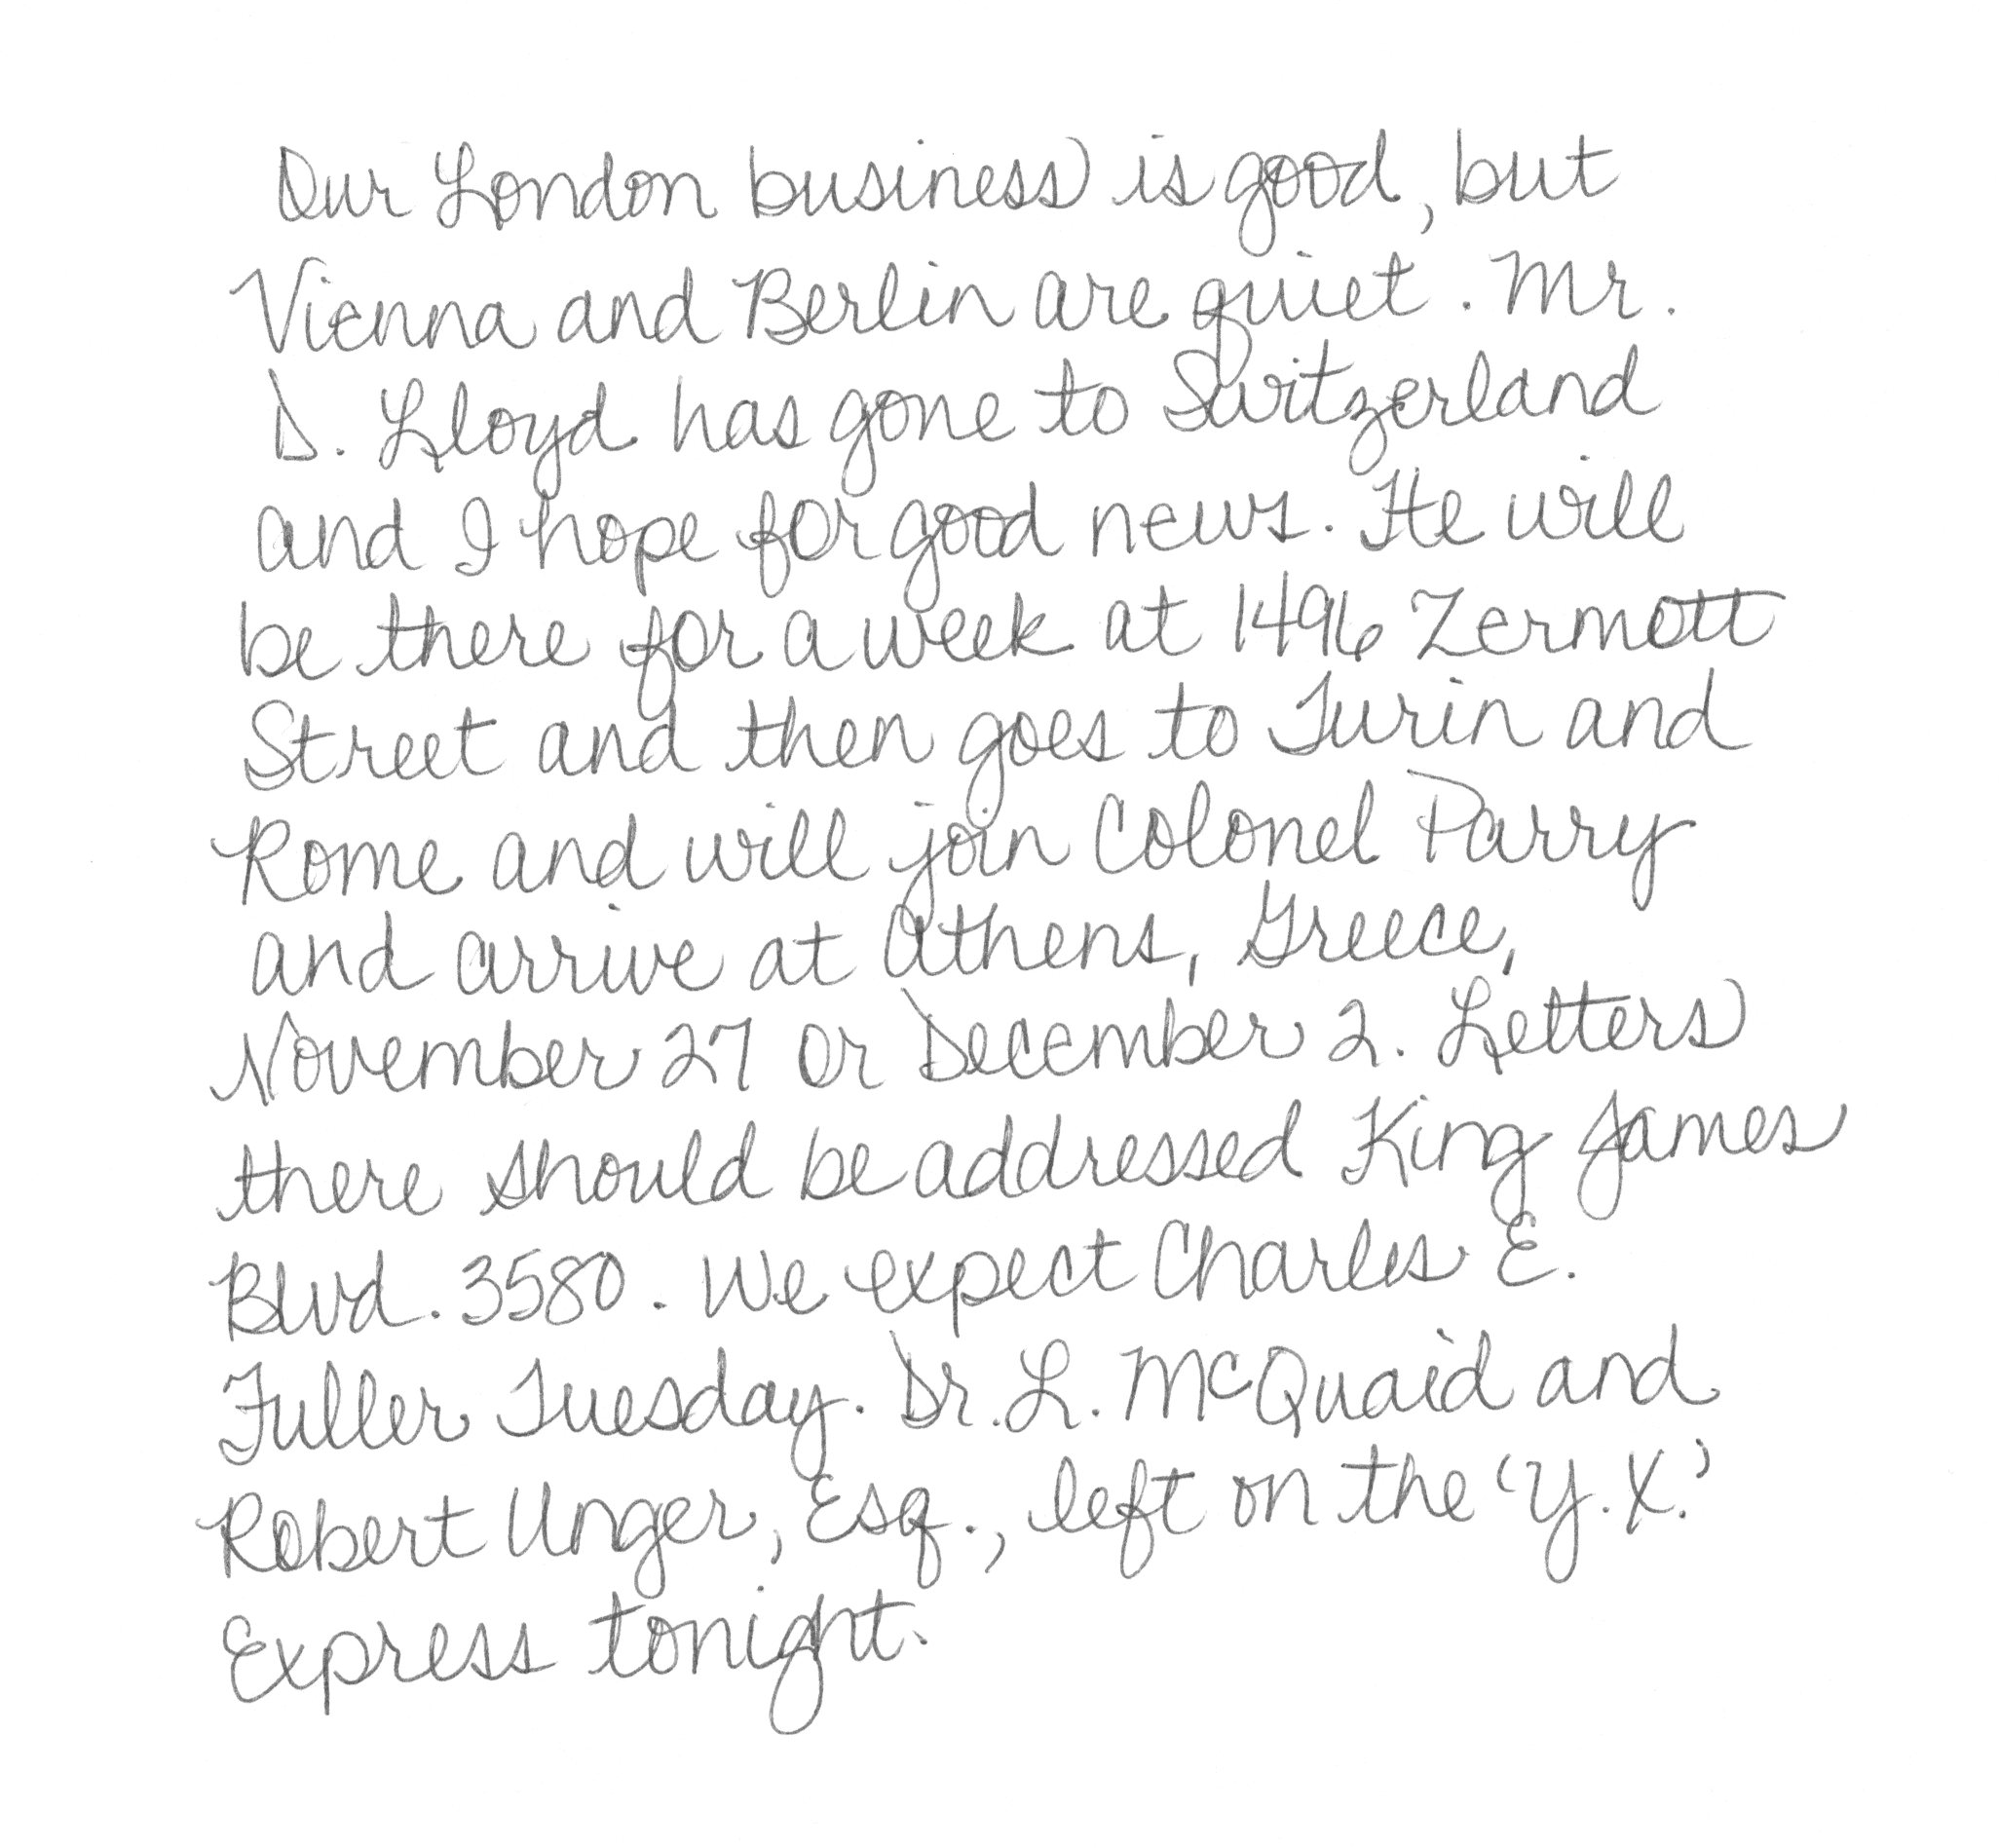 Our London business is good, but
Vienna and Berlin are quiet. Mr.
D. Lloyd has gone to Switzerland
and I hope for good news. He will
be there for a week at 1496 Zermott
Street and then goes to Turin and
Rome and will join Colonel Parry
and arrive at Athens, Greece,
November 27 or December 2. Letters
there should be addressed King James
Blvd. 3580. We expect Charles E.
Fuller Tuesday. Dr. L. McQuaid and
Robert Unger, Esq., left on the 'Y.X.'
Express tonight.